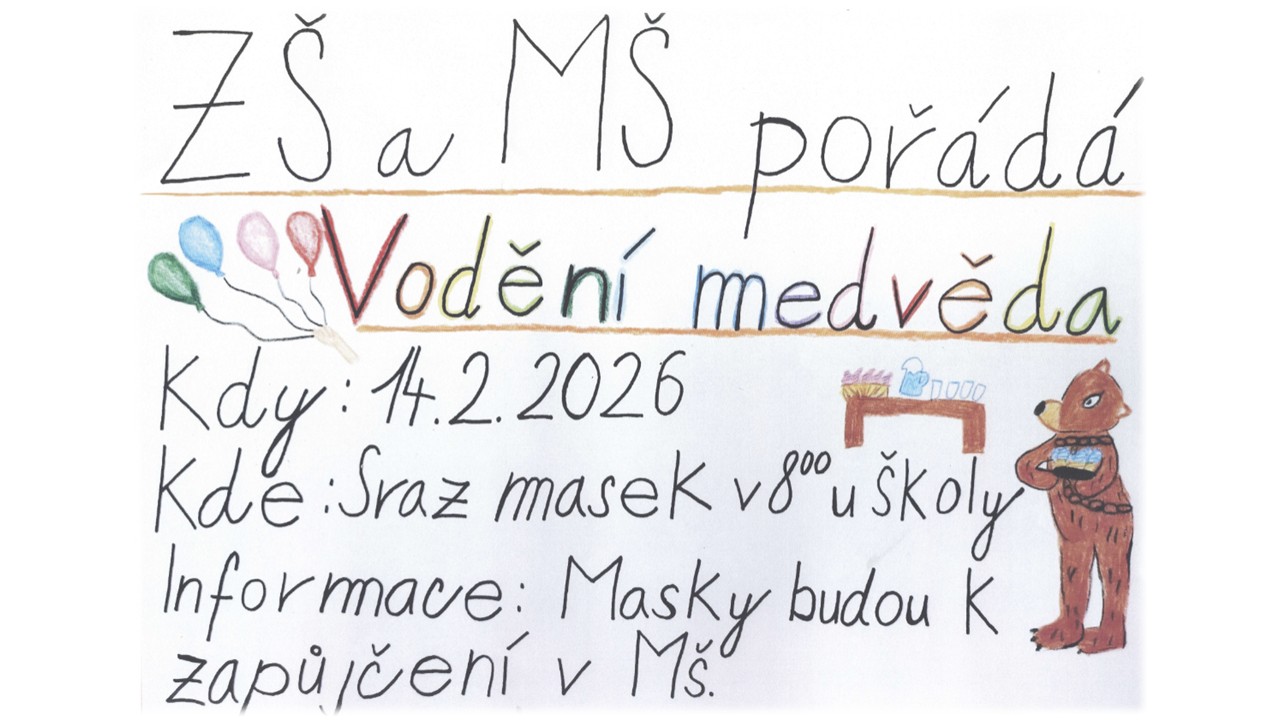 ZŠ a MŠ pořádá
Vodění medvěda
Kdy: 14.2.2026
Kde: Sraz masek v 8⁰⁰ u školy
Informace: Masky budou k
zapůjčení v MŠ.